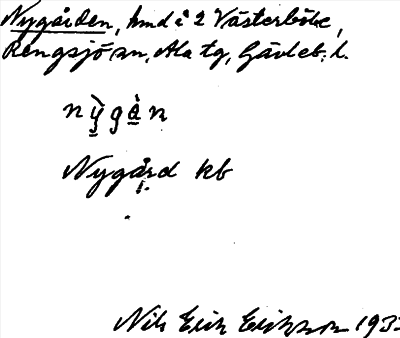 Nygården, hmd i 2 Västerböle,
Rengsjö sn, Ala tg, Gävleb. l.
nỳgàn
Nygård kb
Nils Erik Eriksson 193